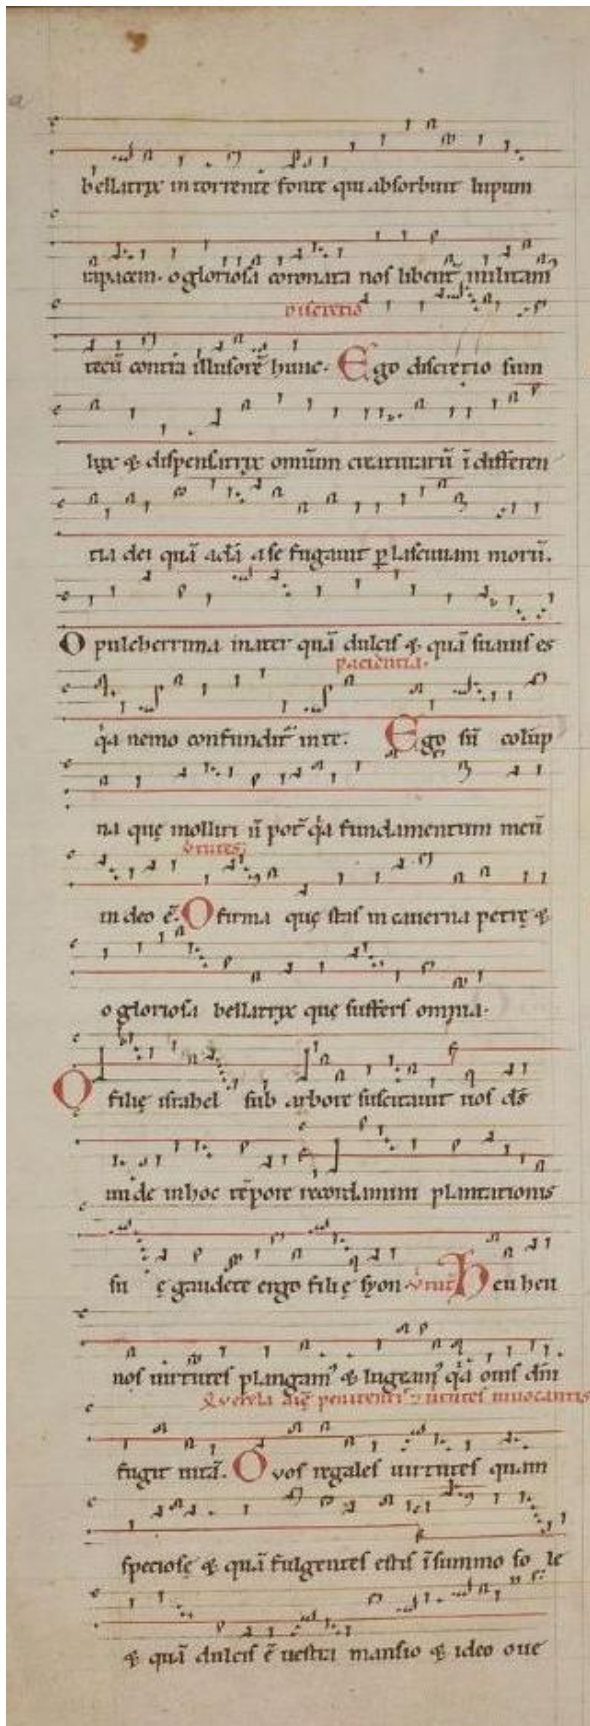 bellatrix in torrente fonte qui absorbuit lupum
rapacem. o gloriosa coronata nos libent̄ militam᷒
discretio
tecū contra illusorē hunc. Ego discretio sum
lux & dispensatrix omīum creaturarū ī differen
tia dei quā adā a se fugauit ꝑ lasciuiam morū.
O pulcherrima mater quā dulcis & quā suauis es
pacientia.
q̇a nemo confundit᷒ in te. Ego sū colūp
na quę molliri n̄ pot᷒ q̇a fundamentum meū
v̇tutes
in deo ē. O firma quę stas in cauerna petrę &
o gloriosa bellatrix quę suffers omnia.
O filię israhel sub arbore suscitauit nos dš
unde in hoc tēpore recordamini plantationis
su ę gaudete ergo filię syon v̇tut᷒ Heu heu
nos uirtutes plangam᷒ & lugeam᷒ q̇a ouis dnī
Querela aīę penitentis & uirtutes inuocantis
fugit uitā. O vos regales uirtutes quam
speciosę & quā fulgentes estis ī summo so le
& quā dulcis ē uestra mansio & ideo oue